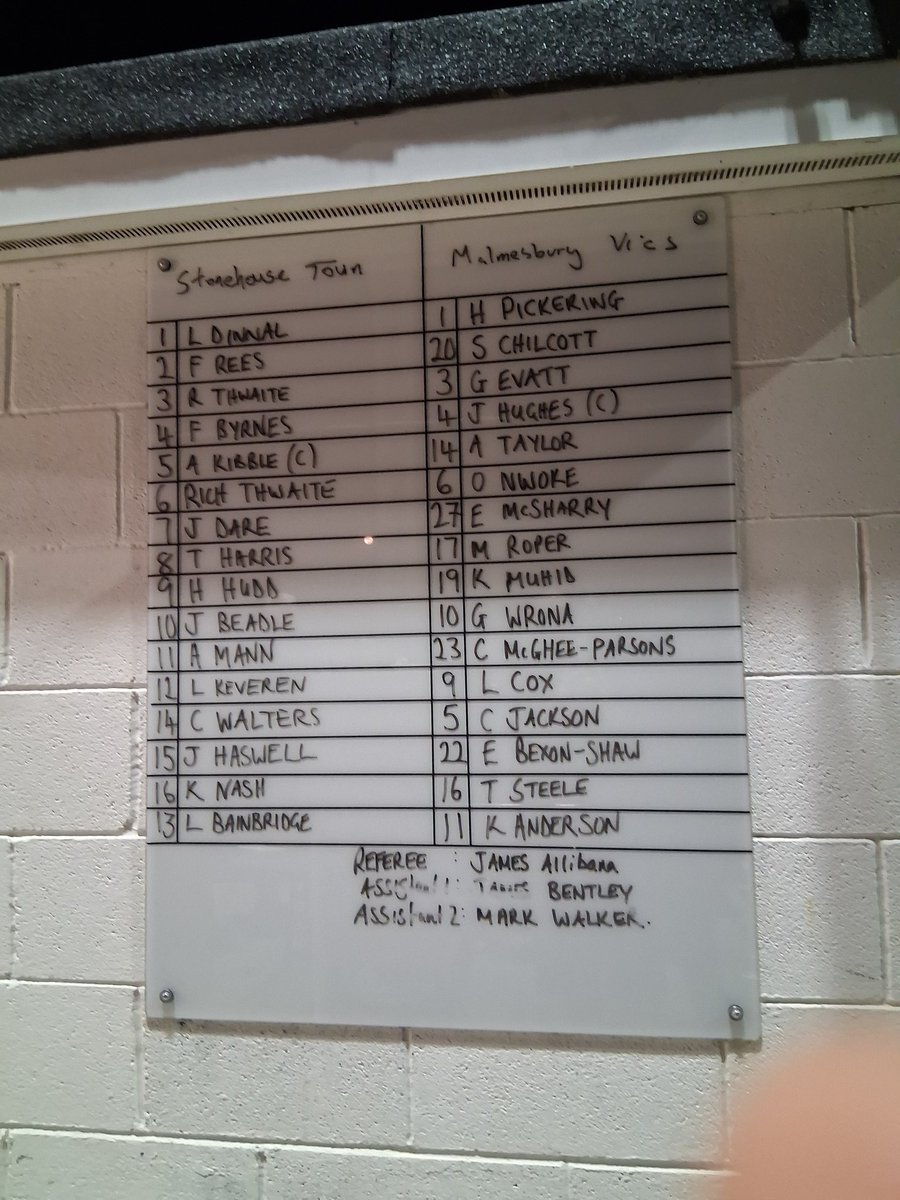 Stonehouse Town Malmesbury Vics
1 L DINNAL 1 H PICKERING
2 F REES 20 S CHILCOTT
3 R THWAITE 3 G EVATT
4 F BYRNES 4 J HUGHES (C)
5 A KIBBLE (C) 14 A TAYLOR
6 RICH THWAITE 6 O NWOKE
7 J DARE 27 E McSHARRY
8 T HARRIS 17 M ROPER
9 H HUDD 19 K MUHID
10 J BEADLE 10 G WRONA
11 A MANN 23 C McGHEE-PARSONS
12 L KEVEREN 9 L COX
14 C WALTERS 5 C JACKSON
15 J HASWELL 22 E BEXON-SHAW
16 K NASH 16 T STEELE
13 L BAINBRIDGE 11 K ANDERSON
REFEREE : JAMES Allibana
ASSIStant 1: BENTLEY
ASSIStant 2: MARK WALKER.